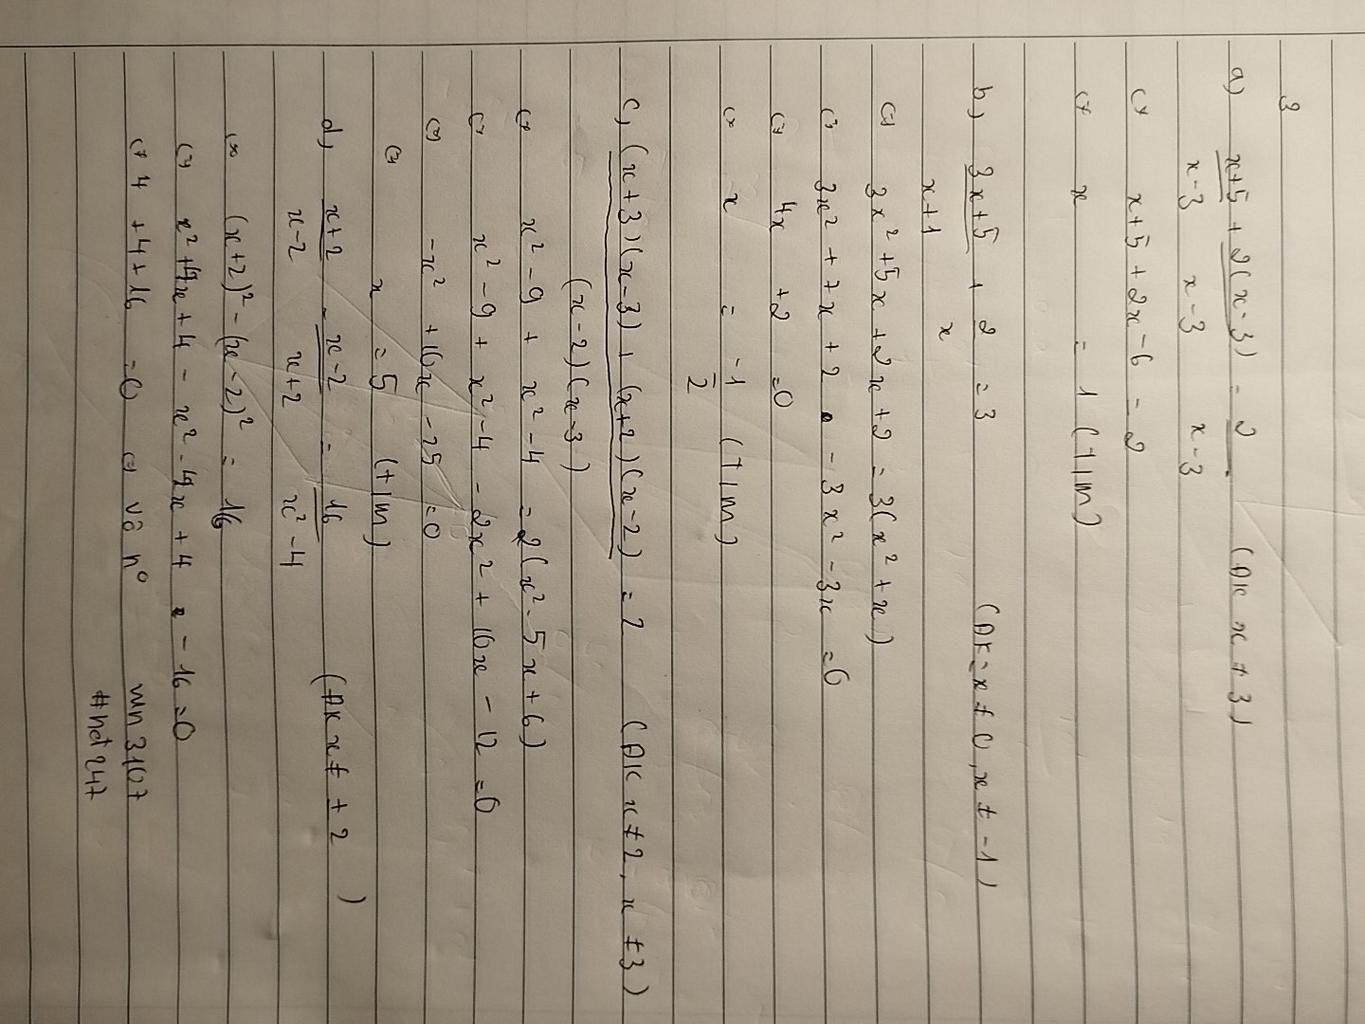 3
a) x+5 + 2(x-3) = 2 (ĐK x ≠ 3)
x-3 x-3 x-3
<=> x+5+2x-6 = 2
<=> x = 1 (T/m)
b) 3x+5 + 2 = 3 (ĐK = x ≠ 0, x ≠ -1)
x+1 x
<=> 3x² + 5x + 2x + 2 = 3(x² + x)
<=> 3x² + 7x + 2 - 3x² - 3x = 0
<=> 4x + 2 = 0
<=> x = -1 (T/m)
2
c, (x+3)(x-3) + (x+2)(x-2) = 2 (ĐK x ≠ 2, x ≠ 3)
(x-2)(x-3)
<=> x² - 9 + x² - 4 = 2(x² - 5x + 6)
<=> x² - 9 + x² - 4 - 2x² + 10x - 12 = 0
<=> -x² + 10x - 25 = 0
<=> x = 5 (t/m)
d, x+2 - x-2 = 16 (ĐK x ≠ ± 2 )
x-2 x+2 x² - 4
<=> (x+2)² - (x-2)² = 16
<=> x² + 4x + 4 - x² - 4x + 4 - 16 = 0
<=> 4 + 4 + 16 = 0 => vô n° wn3107
#hdt247